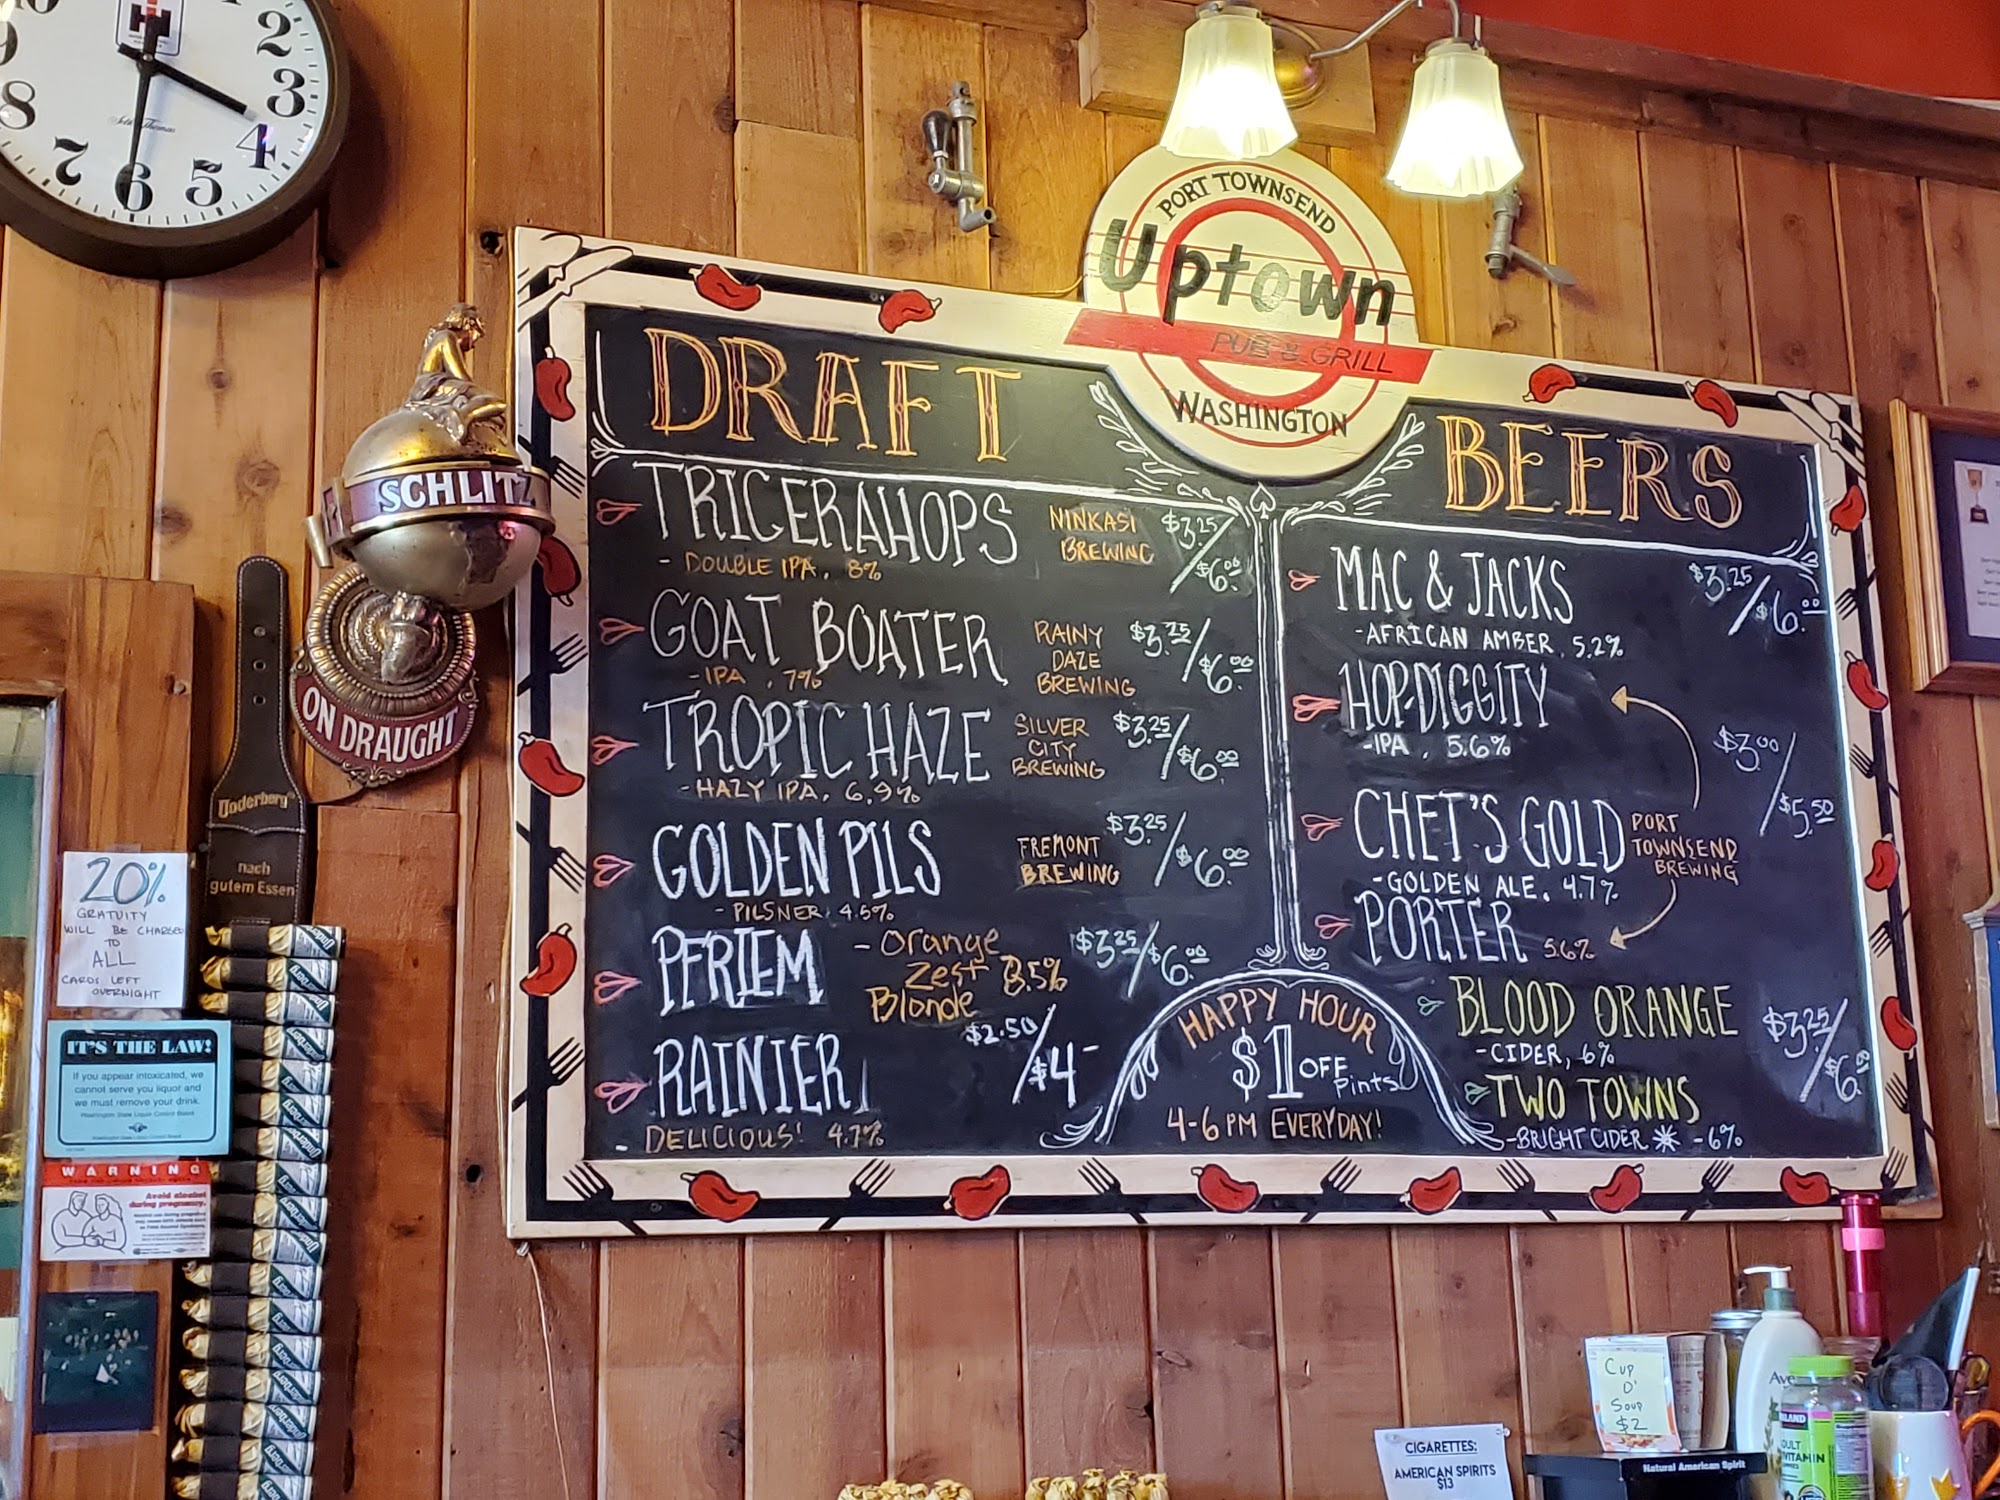 2
3
4
5
6
7
8
9
Seth Thomas
PORT TOWNSEND
Uptown
PUB & GRILL
WASHINGTON
DRAFT BEERS
TRICERAHOPS
NINKASI
BREWING
$3.25/$6.00
- DOUBLE IPA, 8%
GOAT BOATER
RAINY
DAZE
BREWING
$3.25/$6.00
- IPA, 7%
TROPIC HAZE
SILVER
CITY
BREWING
$3.25/$6.00
- HAZY IPA, 6.9%
GOLDEN PILS
FREMONT
BREWING
$3.25/$6.00
- PILSNER, 4.5%
PFRIEM
- Orange
Zest
Blonde
$3.25/$6.00
RAINIER
$2.50/$4-
- DELICIOUS! 4.7%
HAPPY HOUR
$1 OFF
Pints
4-6 PM EVERYDAY!
MAC & JACKS
$3.25/$6.00
- AFRICAN AMBER, 5.2%
HOP-DIGGITY
- IPA, 5.6%
$3.00/$5.50
CHET'S GOLD
PORT
TOWNSEND
BREWING
- GOLDEN ALE, 4.7%
PORTER 5.6%
BLOOD ORANGE
- CIDER, 6%
$3.25/$6.00
TWO TOWNS
- BRIGHT CIDER - 6%
SCHLITZ
ON DRAUGHT
Underberg
nach
gutem Essen
20%
GRATUITY
WILL BE CHARGED
TO
ALL
CARDS LEFT
OVERNIGHT
IT'S THE LAW!
If you appear intoxicated, we
cannot serve you liquor and
we must remove your drink.
Washington State Liquor Control Board
WARNING
Avoid alcohol
during pregnancy.
Cup
O'
Soup
$2
CIGARETTES:
AMERICAN SPIRITS
$13
Natural American Spirit
Ave